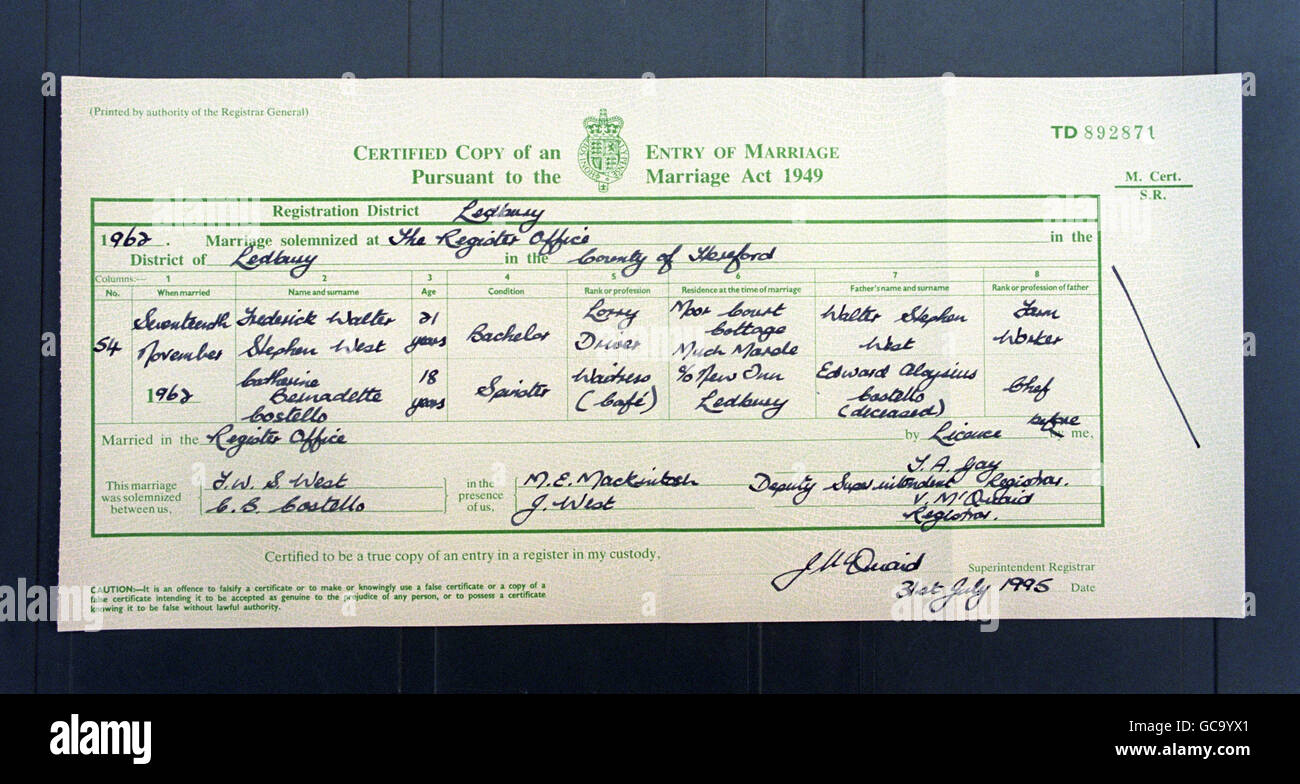 (Printed by authority of the Registrar General)
TD 892871
CERTIFIED COPY of an ENTRY OF MARRIAGE
Pursuant to the Marriage Act 1949
M. Cert.
S.R.
Registration District Ledbury
1962. Marriage solemnized at The Register Office in the
District of Ledbury in the County of Hereford
Columns:— 1 2 3 4 5 6 7 8
No. When married Name and surname Age Condition Rank or profession Residence at the time of marriage Father's name and surname Rank or profession of father
54 Seventeenth November 1962
Frederick Walter Stephen West 21 years Bachelor Lorry Driver Moor Court Cottage Much Marcle Walter Stephen West Farm Worker
Catherine Bernadette Costello 18 years Spinster Waitress (Café) c/o New Inn Ledbury Edward Aloysius Costello (deceased) Chef
Married in the Register Office by Licence before me,
This marriage was solemnized between us,
F. W. S West
C. B. Costello
in the presence of us,
M. E. Mackintosh
J. West
T. A. Gay
Deputy Superintendent Registrar.
V. McQuaid
Registrar.
Certified to be a true copy of an entry in a register in my custody.
J McQuaid Superintendent Registrar
31st July 1995 Date
CAUTION:—It is an offence to falsify a certificate or to make or knowingly use a false certificate or a copy of a
false certificate intending it to be accepted as genuine to the prejudice of any person, or to possess a certificate
knowing it to be false without lawful authority.
alamy
Image ID: GC9YX1
www.alamy.com